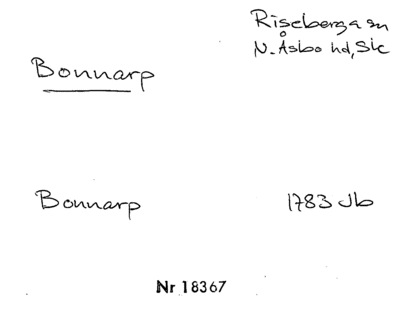 Riseberga sn
N. Åsbo hd, Sk
Bonnarp
Bonnarp 1783 Jb
Nr 18367